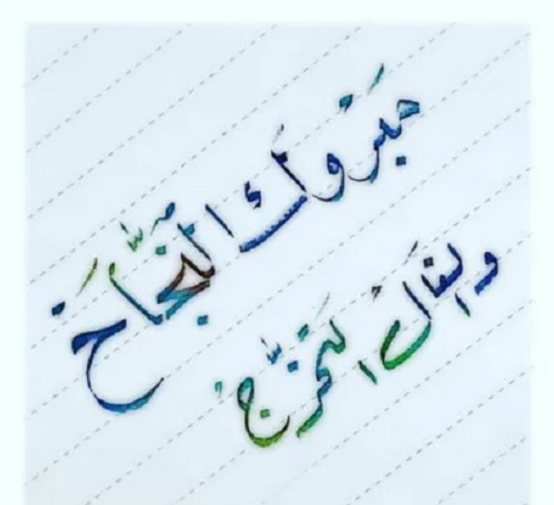 مبروك النجاح
والفال التخرج